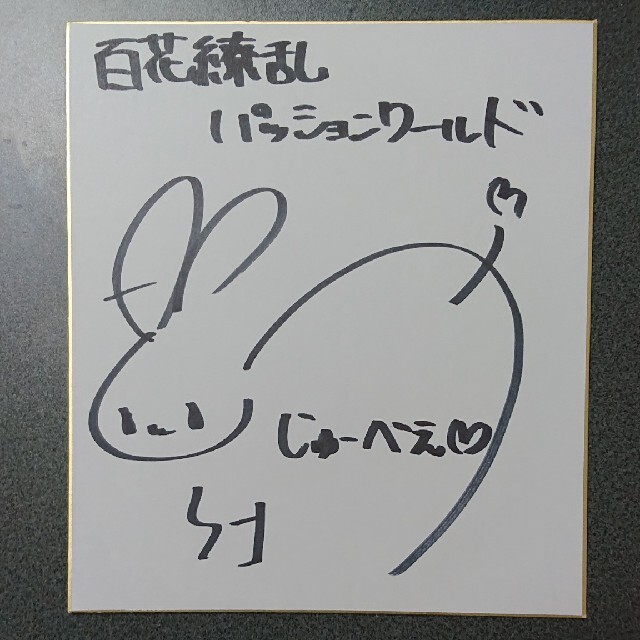 百花繚乱
パッションワールド
じゅーべえ